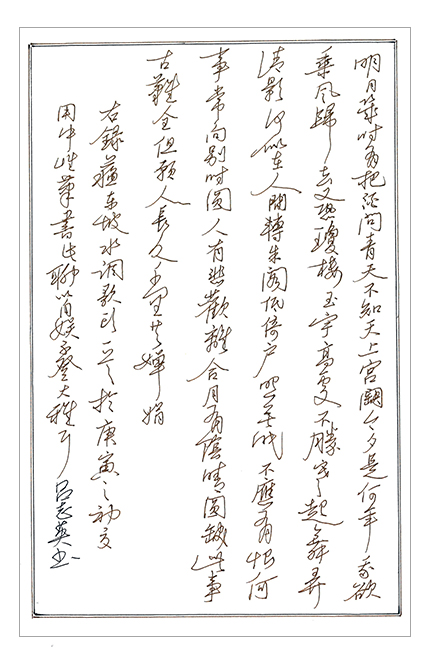 明月幾時有把酒問青天不知天上宮闕今夕是何年我欲
乘風歸去又恐瓊樓玉宇高處不勝寒起舞弄
清影何似在人間轉朱閣低倚戶照無眠不應有恨何
事常向別時圓人有悲歡離合月有陰晴圓缺此事
古難全但願人長久千里共嬋娟
右錄蘇東坡水調歌頭於庚寅之初夏
用中性筆書此聊以自娛不登大雅耳 呂志英書